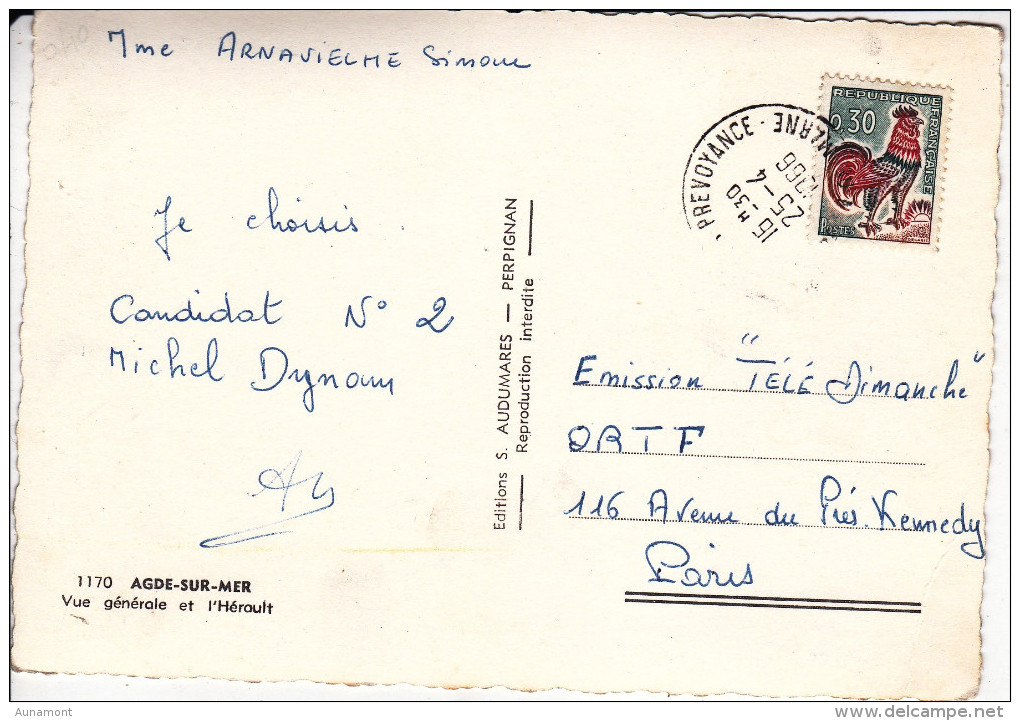 Mme ARNAVIELHE Simone
Je choisis
Candidat N° 2
Michel Dynam
1170 AGDE-SUR-MER
Vue générale et l'Hérault
Editions S. AUDUMARES — PERPIGNAN
Reproduction interdite
PREVOYANCE - MARNE
16 H -30
25 -4
1966
REPUBLIQUE FRANÇAISE
0,30
POSTES
Emission "TÉLÉ Dimanche"
ORTF
116 Avenue du Prés. Kennedy
Paris
Aunamont
www.delcampe.net